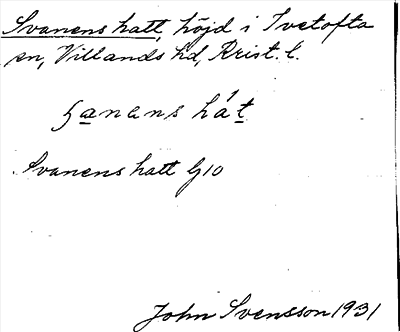 Svanens hatt, höjd i Ivetofta
sn, Villands hd, Krist. l.
hát
Svanens hatt G 10
John Svensson 1931